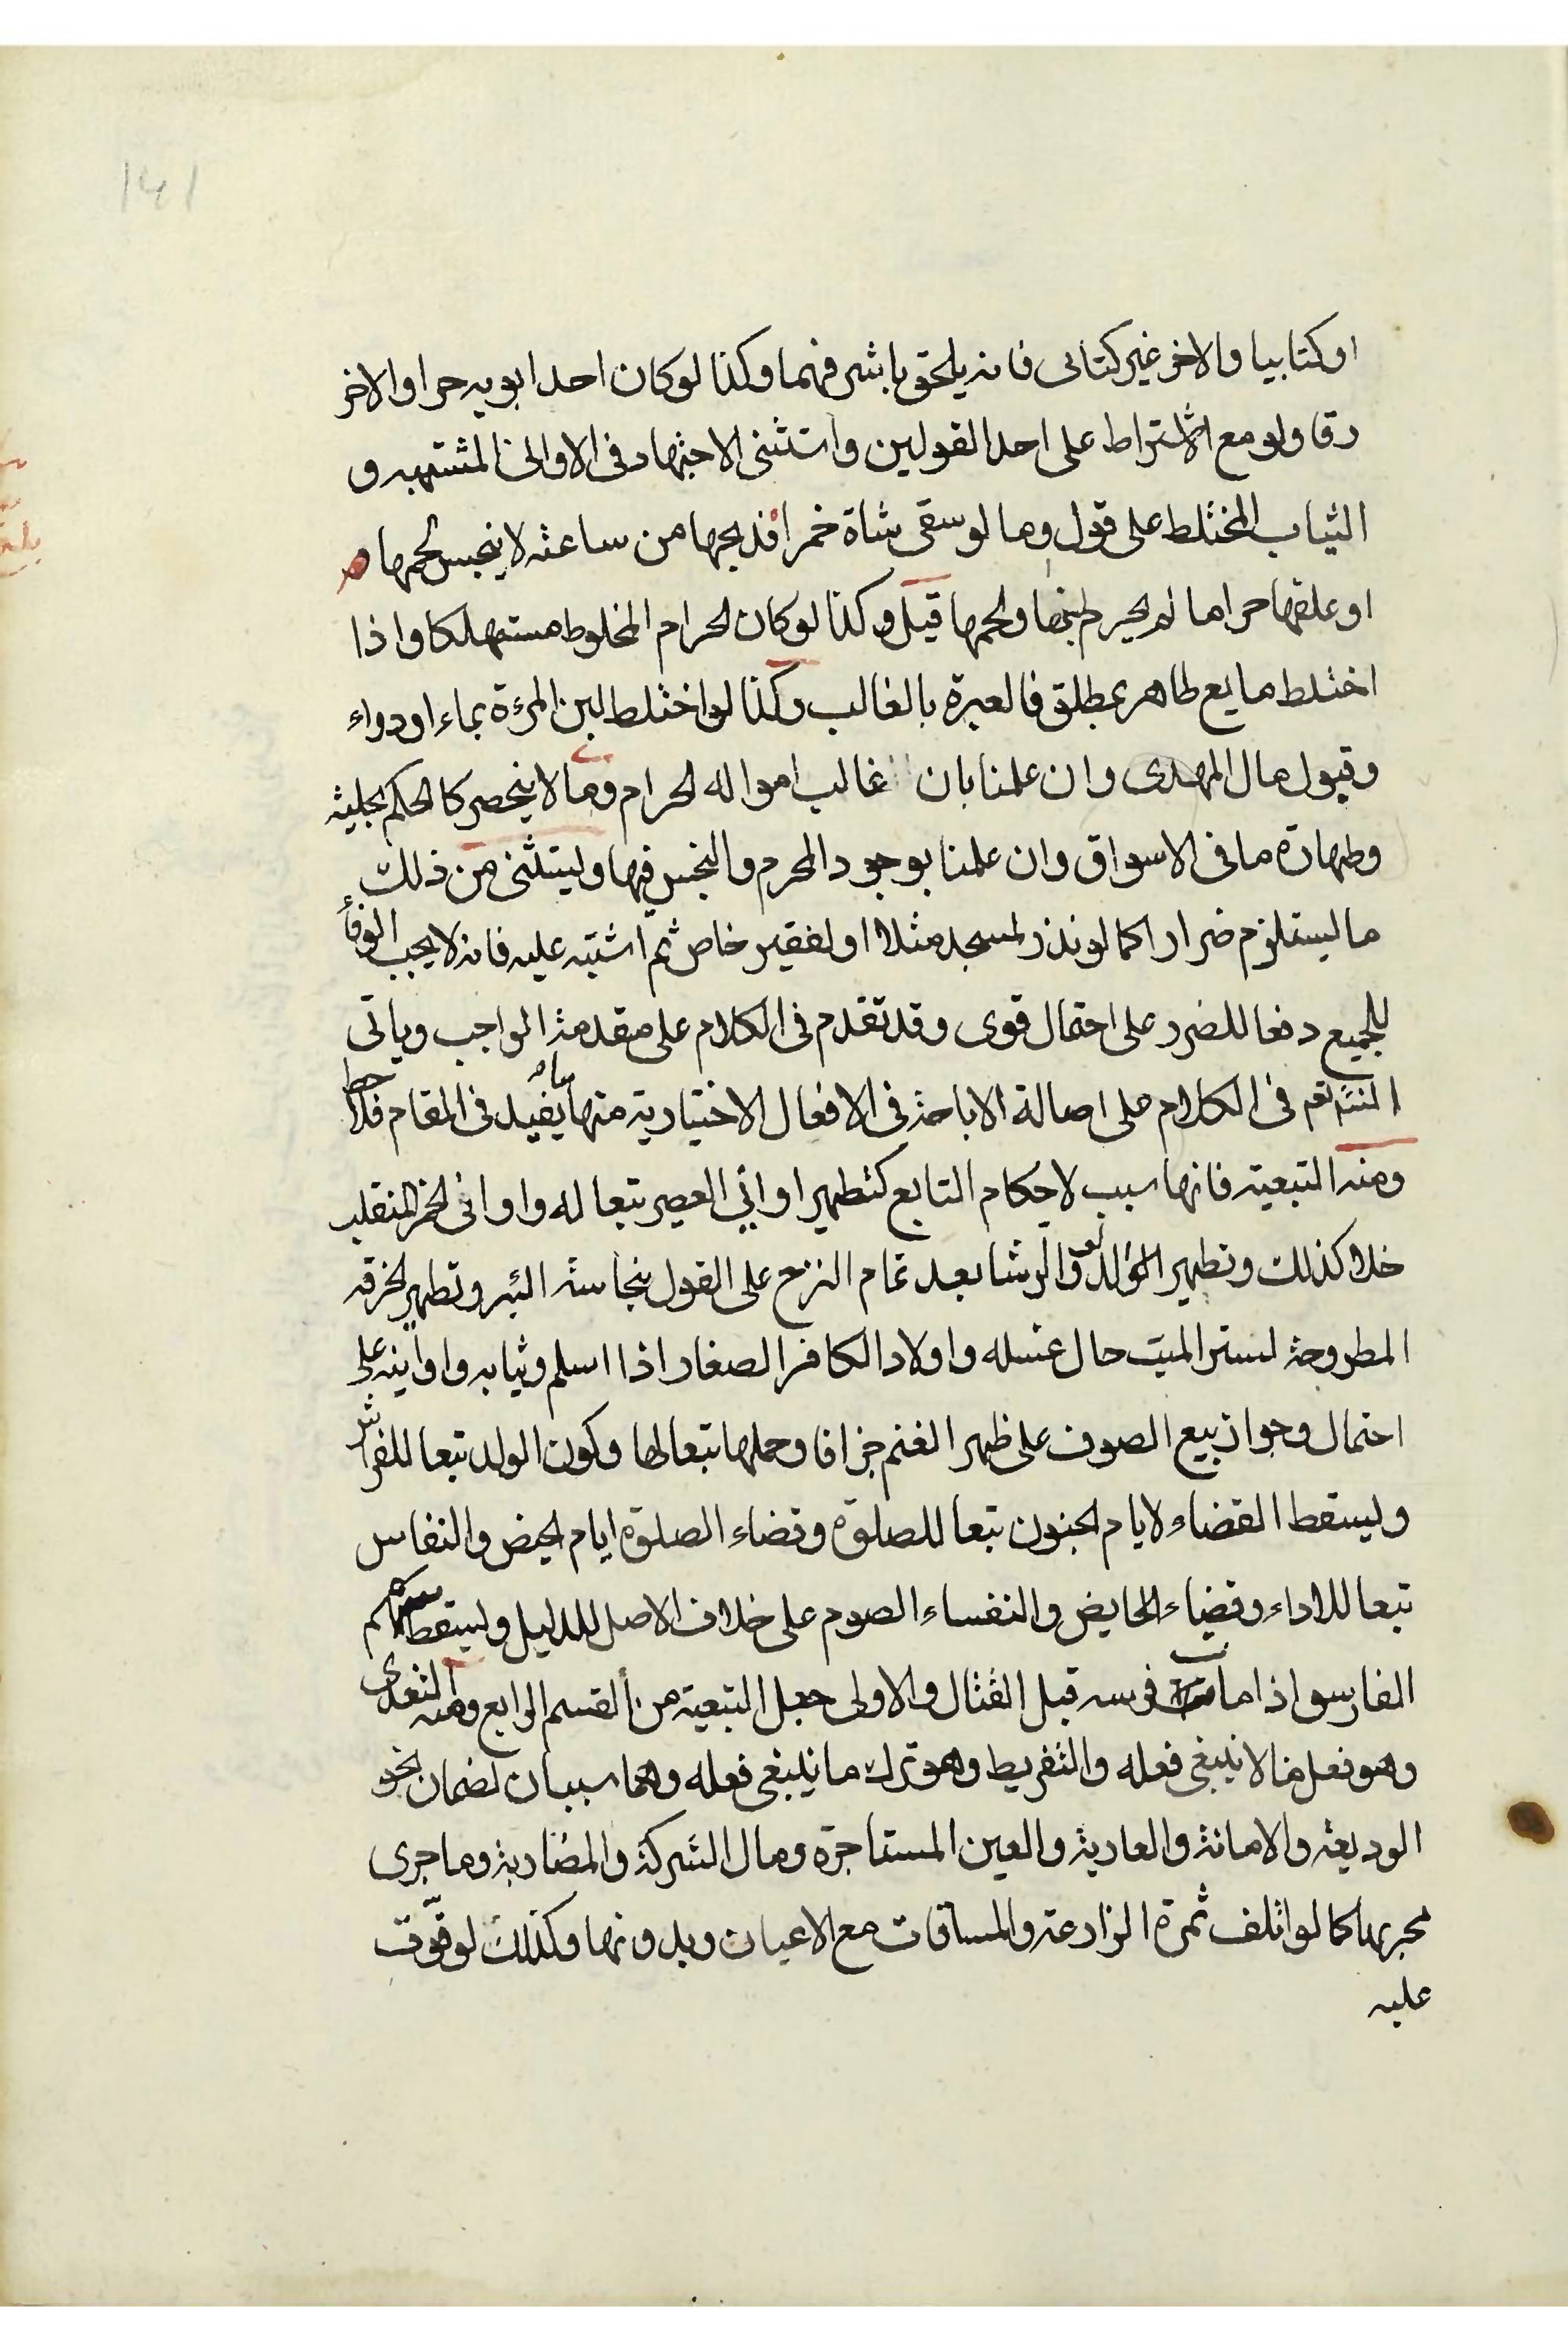 141
او كتابيا والاخر غير كتابى فانه يلحق باشرفهما وكذا لو كان احد ابويه حرا والاخر
رقا ولو مع الاشتراط على احد القولين واستثنى الاجتهاد فى الاوانى المشتبهه و
الثياب المختلط على قول وما لو سقى شاة خمرا فذبحها من ساعته لا ينجس لحمها
او علقها حراما لم يحرم لبنها ولحمها قيل وكذا لو كان الحرام المخلوط مستهلكا واذا
اختلط مايع طاهر بمطلق فالعبرة بالغالب وكذا لو اختلط لبن المرءة بماء او دواء
وقبول مال المهدى وان علمنا بان غالب امواله الحرام وما لا ينحصر كالحكم بحلية
وطهارة ما فى الاسواق وان علمنا بوجود المحرم والنجس فيها وليتثنى من ذلك
ما يستلزم ضرارا كما لو نذر لمسجد مثلا او لفقير خاص ثم اشتبه عليه فانه لا يجب الوفاء
للجميع دفعا للضرر على احتمال قوى وقد تقدم فى الكلام على مقدمة الواجب وياتى
فى الكلام على اصالة الاباحة فى الافعال الاختيارية منها يفيد فى المقام فلاحظ
ومنه التبعية فانها سبب لاحكام التابع كتطهير اوانى العصير تبعا له واوانى الخمر المنقلب
خلا كذلك وتطهير الدلو والرشا بعد تمام النزح على القول بنجاسة البئر وتطهير الخرقه
المطروحة لستر الميت حال غسله واولاد الكافر الصغار اذا اسلم وثيابه واوانيه على
احتمال وجواز بيع الصوف على ظهر الغنم جزافا وحملها تبعا لها وكون الولد تبعا للفراش
ويسقط القضاء لايام الجنون تبعا للصلوة وقضاء الصلوة ايام الحيض والنفاس
تبعا للاداء وقضاء الحايض والنفساء الصوم على خلاف الاصل للدليل ويسقط سهم
الفارس اذا مات فرسه قبل القتال والاولى جعل التبعية من القسم الرابع ومنه التعدى
وهو فعل ما لا ينبغى فعله والتفريط وهو ترك ما ينبغى فعله وهما سببان لضمان نحو
الوديعة والامانة والعارية والعين المستاجرة ومال الشركة والمضاربة وما جرى
مجريها كما لو اتلف ثمرة المزارعة والمساقات مع الاعيان وبدونها وكذلك لو فوّت
عليه